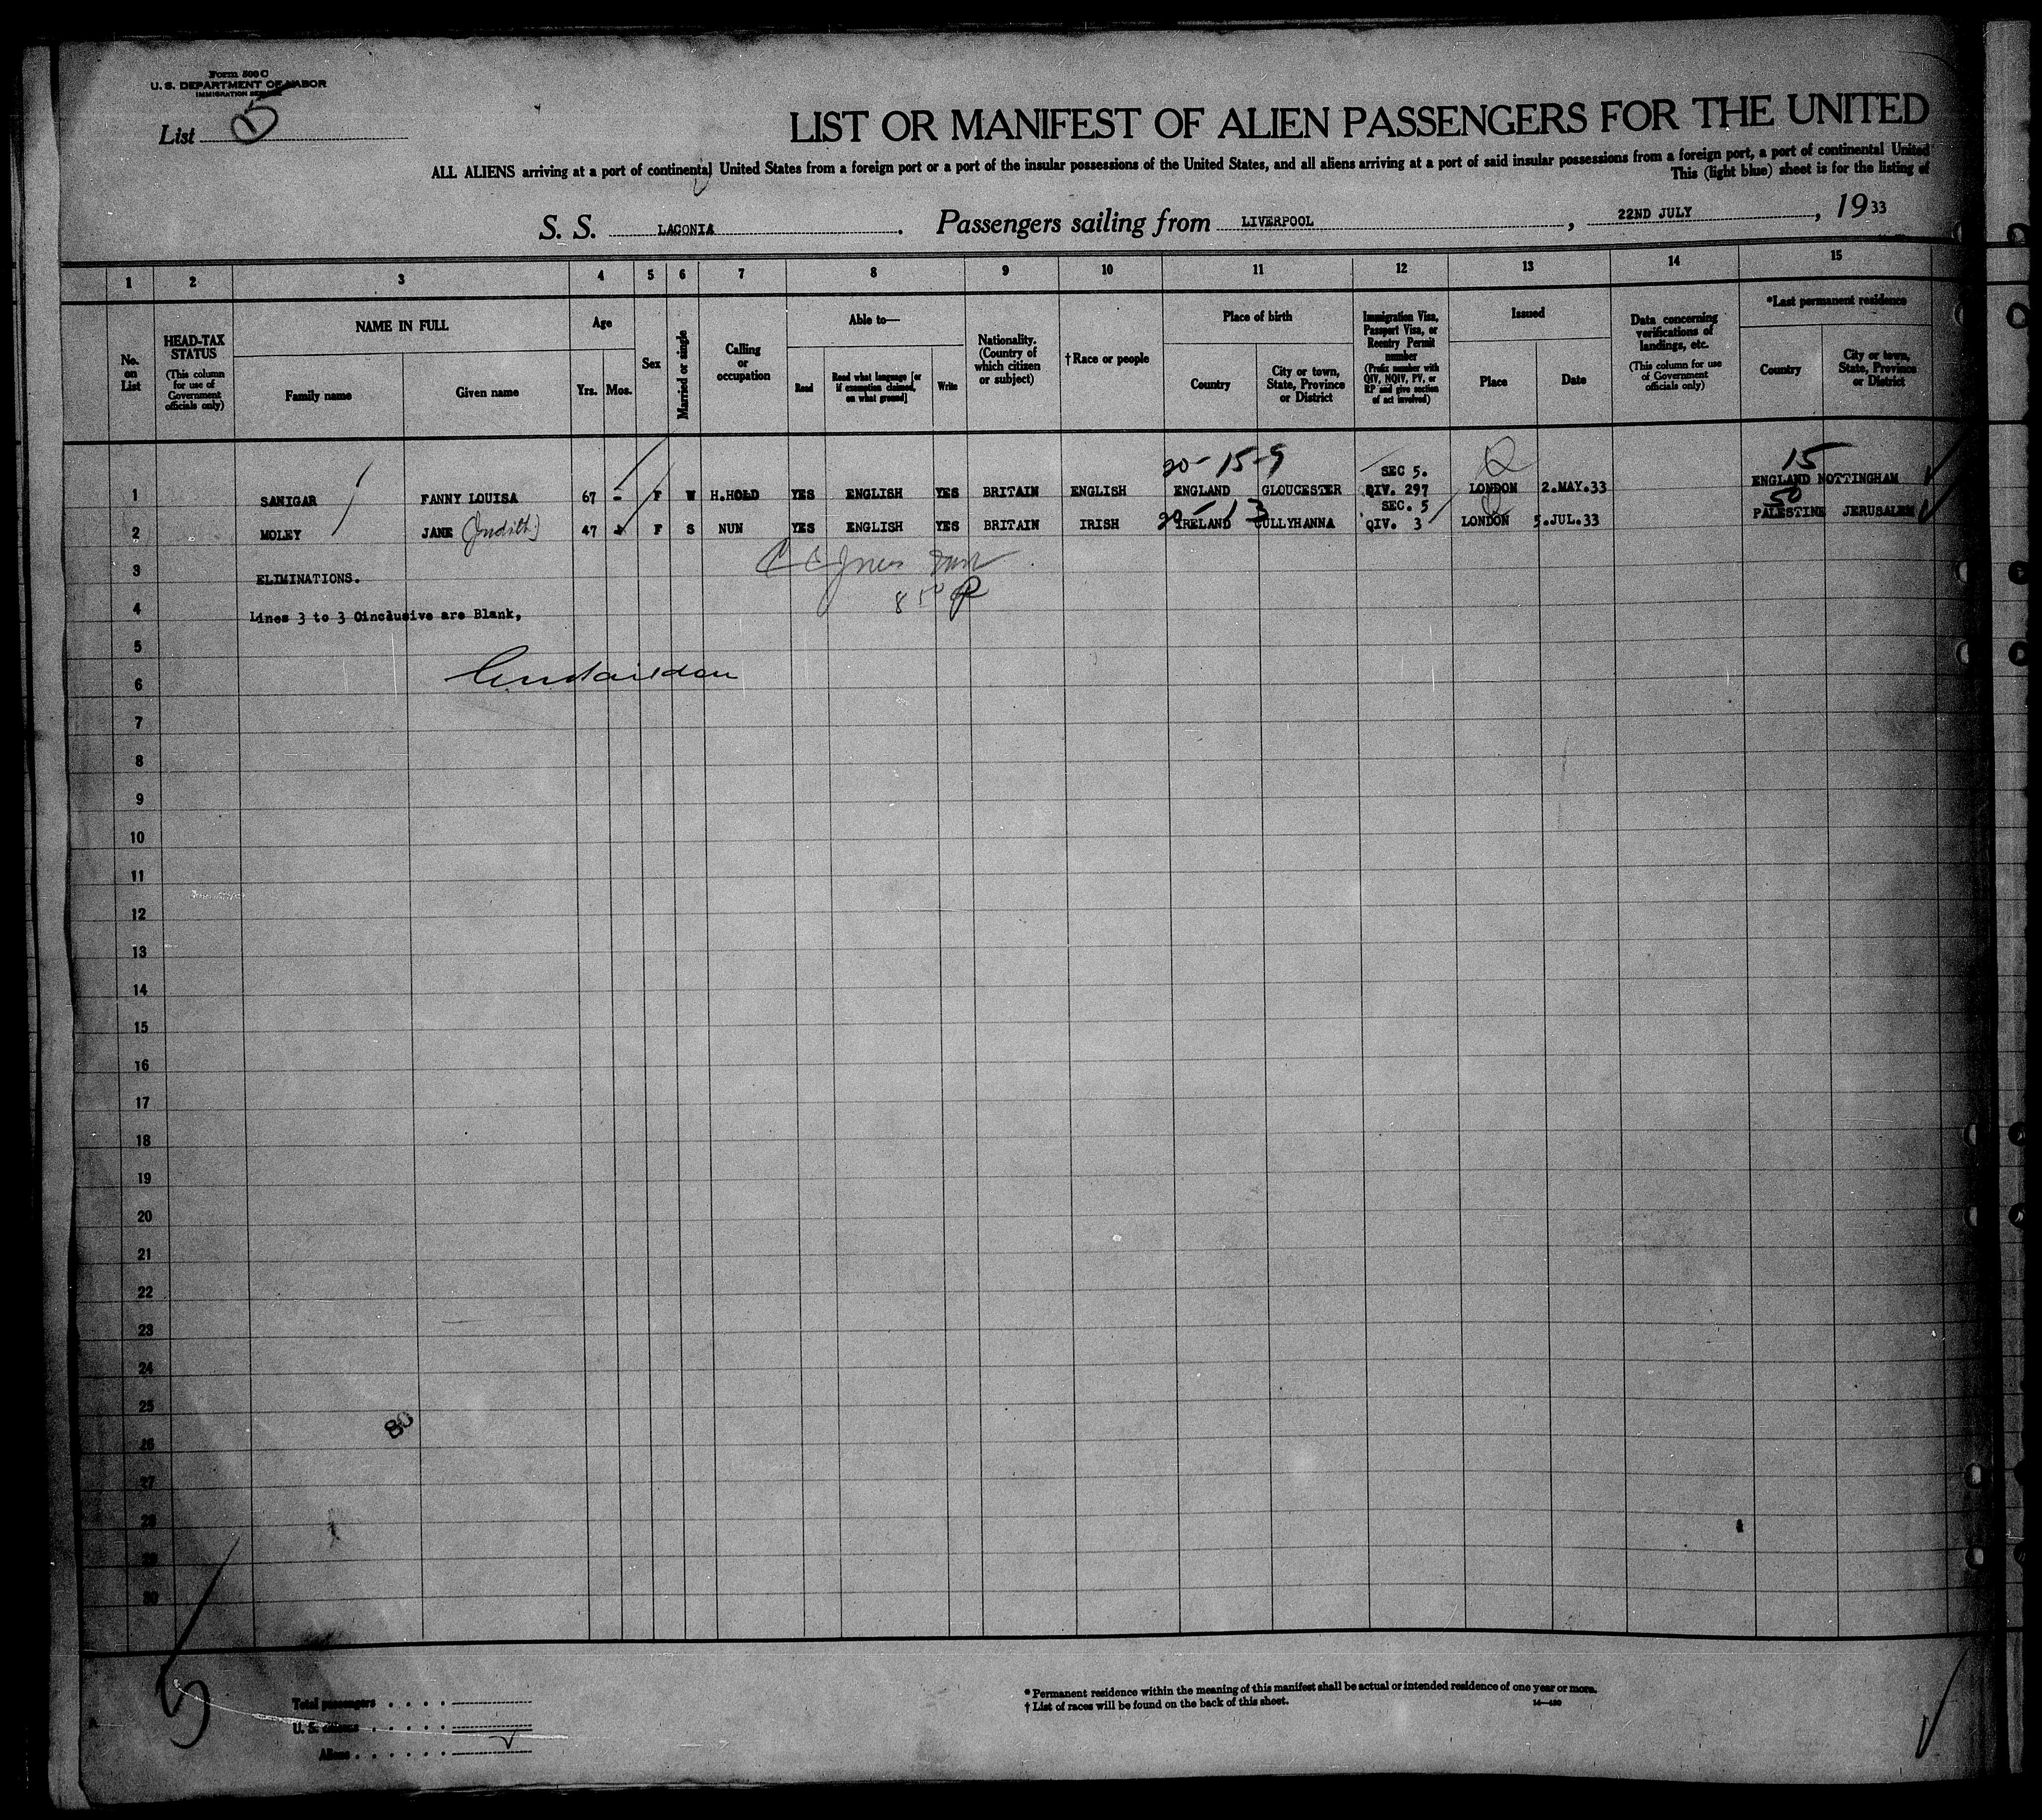 Form 500 C
U. S. DEPARTMENT OF LABOR
IMMIGRATION SERVICE
List 5
LIST OR MANIFEST OF ALIEN PASSENGERS FOR THE UNITED
ALL ALIENS arriving at a port of continental United States from a foreign port or a port of the insular possessions of the United States, and all aliens arriving at a port of said insular possessions from a foreign port, a port of continental United
This (light blue) sheet is for the listing of
S. S. LACONIA. Passengers sailing from LIVERPOOL, 22ND JULY, 1933
1 2 3 4 5 6 7 8 9 10 11 12 13 14 15
No. on List
HEAD-TAX STATUS
(This column for use of Government officials only)
NAME IN FULL
Family name
Given name
Age
Yrs. Mos.
Sex
Married or single
Calling or occupation
Able to—
Read
Read what language [or if exemption claimed, on what ground]
Write
Nationality. (Country of which citizen or subject)
†Race or people
Place of birth
Country
City or town, State, Province or District
Immigration Visa, Passport Visa, or Reentry Permit number
(Prefix number with QIV, NQIV, PV, or RP and give section of act involved)
Issued
Place
Date
Data concerning verifications of landings, etc.
(This column for use of Government officials only)
*Last permanent residence
Country
City or town, State, Province or District
20-15-9 SEC 5. 15
1 SANIGAR FANNY LOUISA 67 - F W H.HOLD YES ENGLISH YES BRITAIN ENGLISH ENGLAND GLOUCESTER QIV. 297 LONDON 2.MAY.33 ENGLAND NOTTINGHAM
SEC. 5 50
2 MOLEY JANE (Judith) 47 F S NUN YES ENGLISH YES BRITAIN IRISH IRELAND CULLYHANNA QIV. 3 LONDON 5.JUL.33 PALESTINE JERUSALEM
3 ELIMINATIONS.
4 Lines 3 to 3 0inclusive are Blank,
5
6
7
8
9
10
11
12
13
14
15
16
17
18
19
20
21
22
23
24
25
80
26
27
28
29
30
Total passengers
U. S. citizens
Aliens
* Permanent residence within the meaning of this manifest shall be actual or intended residence of one year or more.
† List of races will be found on the back of this sheet.
14—430